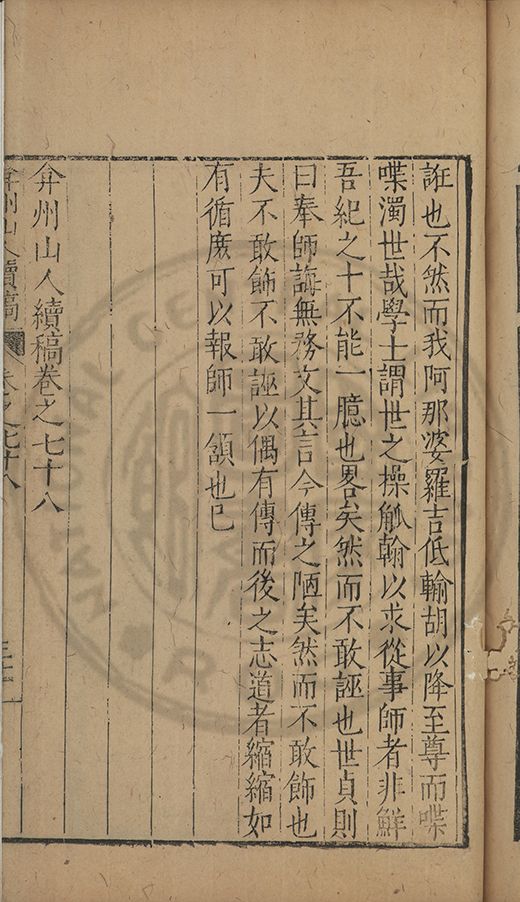 誑也不然而我阿那婆羅吉低輸胡以降至尊而喋
喋濁世哉學士謂世之操觚翰以求從事師者非鮮
吾紀之十不能一臆也畧矣然而不敢誣也世貞則
曰奉師誨無務文其言今傳之陋矣然而不敢飾也
夫不敢飾不敢誣以偶有傳而後之志道者縮縮如
有循庶可以報師一頷也已
弇州山人續稿卷之七十八
弇州山人續稿 卷之七十八